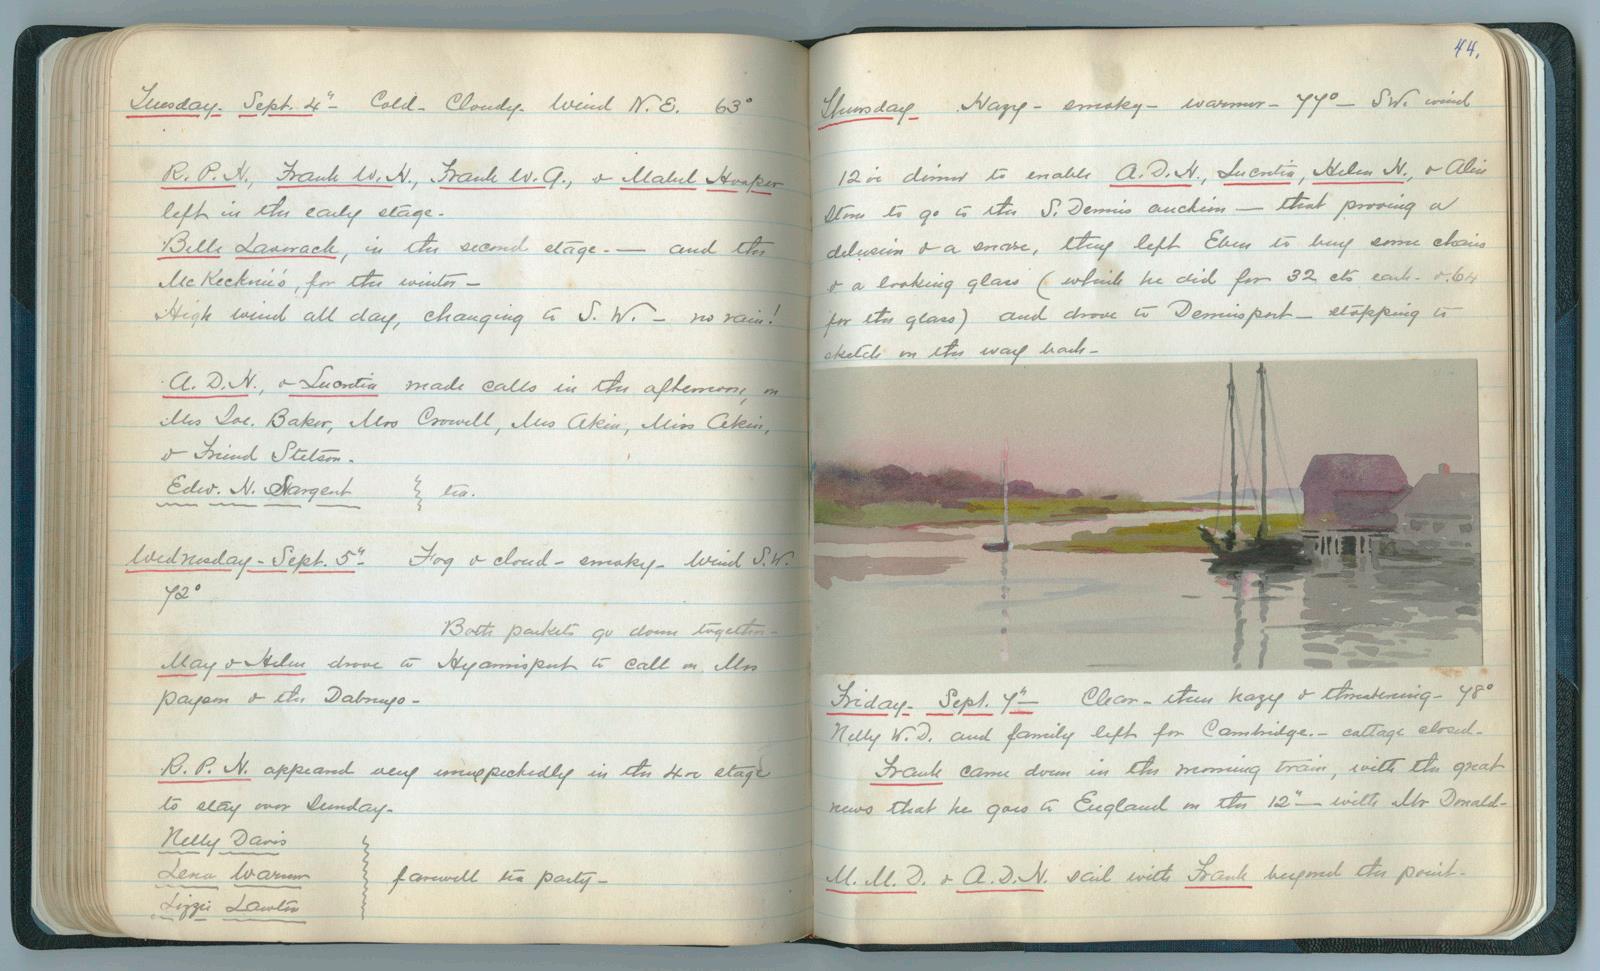 Tuesday. Sept. 4"- Cold- Cloudy. Wind N.E. 63°
R. P. N., Frank W. N., Frank W. G., & Mabel Hooper
left in the early stage.
Belle Laverack, in the second stage.— and the
McKecknie's, for the winter—
High wind all day, changing to S. W.- no rain!
A. D. N., & Lucretia made calls in the afternoon, on
Mrs Joe. Baker, Mrs Crowell, Mrs Akin, Miss Akin,
& Friend Stetson.
Edw. N. Sargent } tea.
Wednesday- Sept. 5"- Fog & cloud- smoky- Wind S.W.
72°
Both packets go down together-
May & Helen drove to Hyannisport to call on Mrs
Payson & the
R. P. N. appeared very unexpectedly in the 4oc stage
to stay over Sunday.
Nelly Davis
Lena
Lizzie Lawton
} farewell tea party-
44.
Thursday Hazy- smoky- warmer- 77°- SW. wind
12oc dinner to enable A.D.N., Lucretia, Helen N., & Alice
Stone to go to the S. Dennis auction — that proving a
delusion & a snare, they left Eben to buy some chairs
& a looking glass (which he did for 32 cts each- & .64
for the glass) and drove to Dennisport- stopping to
sketch on the way back-
Friday- Sept. 7"- Clear- then hazy & threatening- 78°
Nelly W.D. and family left for Cambridge.- cottage closed.
Frank came down in the morning train, with the great
news that he goes to England on the 12"- with Mr Donald-
M. M. D. & A.D.N. sail with Frank beyond the point-